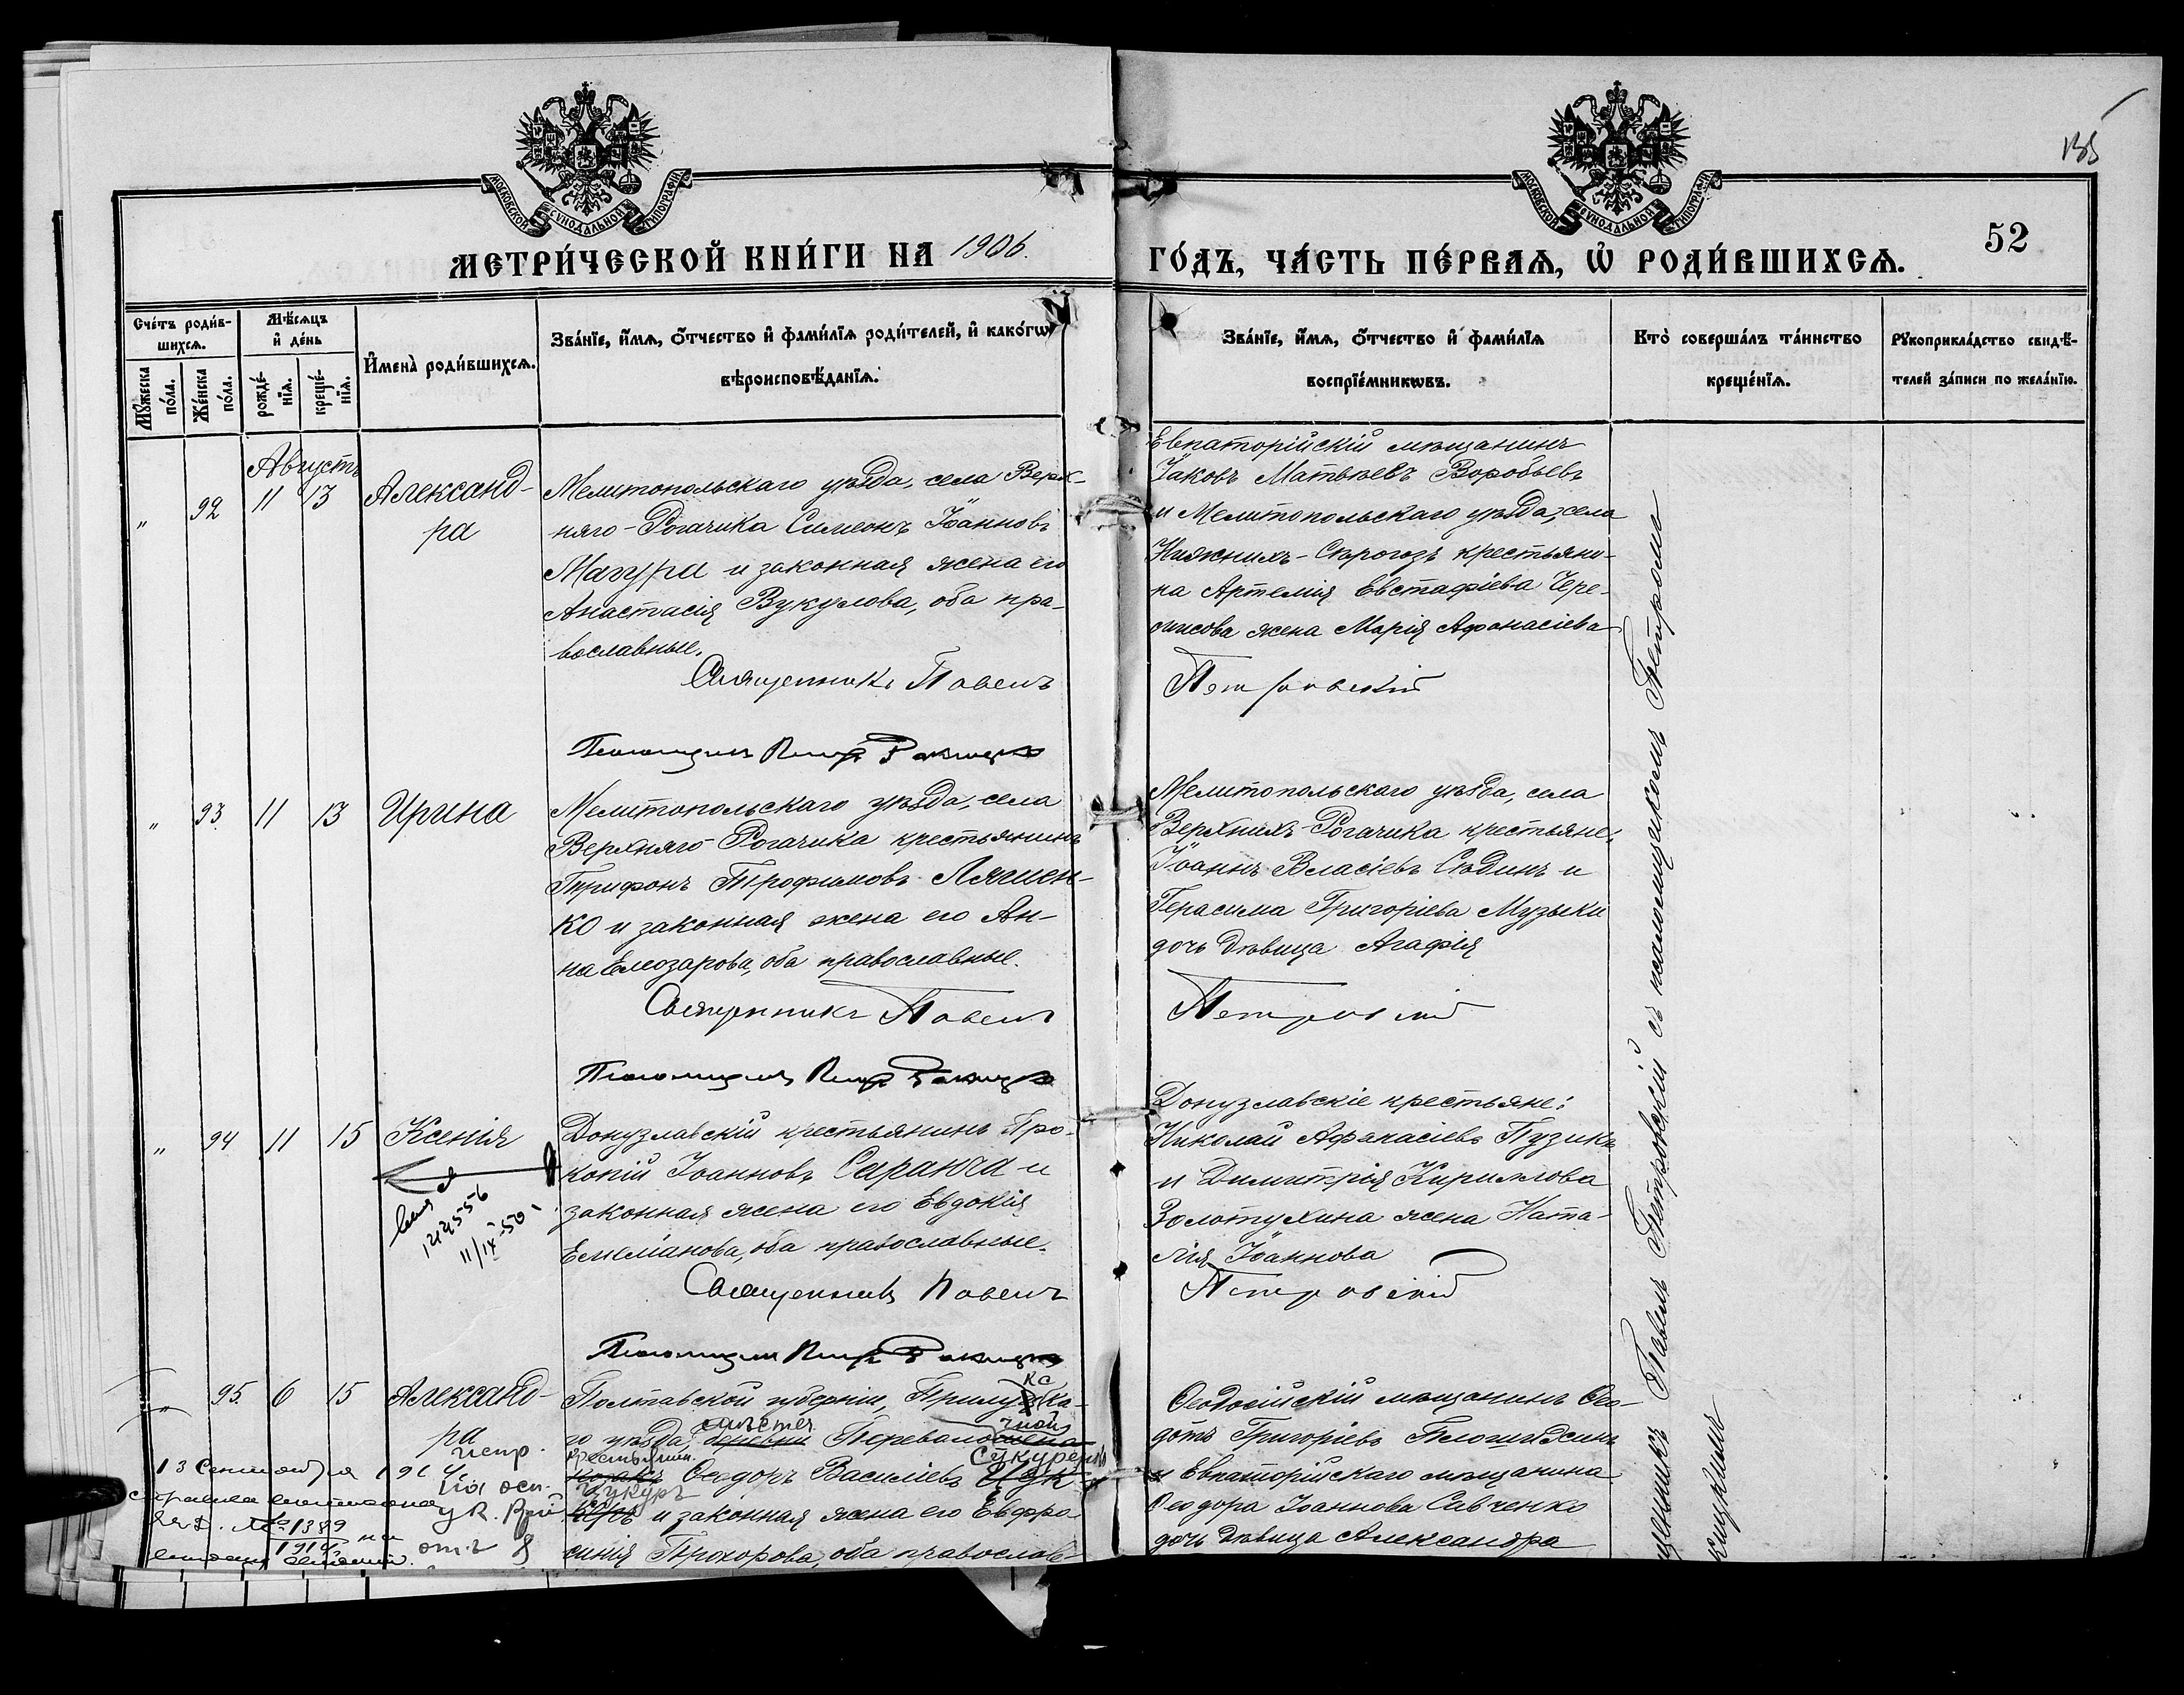 МОСКОВСКОЙ СѴНОДАЛЬНОЙ ТИПОГРАФІИ
МОСКОВСКОЙ СѴНОДАЛЬНОЙ ТИПОГРАФІИ
52
МЕТРИ́ЧЕСКОЙ КНИ́ГИ НА 1906.
ГО́ДЪ, ЧА́СТЬ ПЕ́РВАѦ, Ѡ҆ РОДИ́ВШИХСѦ.
Сче́тъ роди́в-
шихсѧ.
Мꙋ́жеска
по́ла.
Же́нска
по́ла.
Мѣ́сѧцъ
и҆ де́нь
рожде́-
нїѧ.
креще́-
нїѧ.
И҆мена̀ роди́вшихсѧ.
Зва́нїе, и҆́мѧ, ѻ҆́тчество и҆ фами́лїѧ роди́телей, и҆ како́гѡ
вѣроисповѣ́данїѧ.
Зва́нїе, и҆́мѧ, ѻ҆́тчество и҆ фами́лїѧ
воспрїе́мникѡвъ.
Кто̀ соверша́лъ та́инство
креще́нїѧ.
Рꙋкоприкла́дство свидѣ́-
телей за́писи по жела́нїю.
Августъ
"
92
11
13
Александ-
ра
Мелитопольскаго уѣзда, села Верх-
няго-Рогачика Симеонъ Іоанновъ
Магура и законная жена его
Анастасія Вукулова, оба пра-
вославные.
Священникъ Павелъ
Псаломщикъ Петръ
Евпаторійскій мѣщанинъ
Іаковъ Матвѣевъ Воробьевъ
и Мелитопольскаго уѣзда, села
Нижнихъ-Сѣрогозъ крестьяни-
на Артемія Евстафіева Чере-
жена Марія Афанасіева
Петровскій
"
93
11
13
Ирина
Мелитопольскаго уѣзда, села
Верхняго Рогачика крестьянинъ
Трифонъ Трофимовъ Ляшен-
ко и законная жена его Ан-
на Елеозарова, оба православные.
Священникъ Павелъ
Псаломщикъ Петръ
Мелитопольскаго уѣзда, села
Верхнихъ-Рогачика крестьяне:
Іоаннъ Власіевъ Сѣдинъ и
Герасима Григоріева Музыки
дочь дѣвица Агафія
Петровскій
"
94
11
15
Ксенія
11/IX-50
Донузлавскій крестьянинъ Про-
копій Іоанновъ Саранча и
законная жена его Евдокія
Емеліанова, оба православные.
Священникъ Павелъ
Псаломщикъ Петръ
Донузлавскіе крестьяне:
Николай Афанасіевъ Пузикъ
и Димитрія Кириллова
Золотухина жена Ната-
лія Іоаннова
Петровскій
"
95
6
15
Александ-
ра
Полтавской губерніи, Прилу ка-
го уѣзда, деревни
крестьянин. козакъ Ѳеодоръ Василіевъ Цук-
Цукуръ
и законная жена его Евфро
синія Прохорова, оба православ-
Ѳеодосійскій мѣщанинъ Ѳео-
дотъ Григоріевъ
и Евпаторійскаго мѣщанина
Ѳеодора Іоаннова Савченко
дочь дѣвица Александра
13 Сентября
№ 1389
Павелъ Петровскій съ псаломщикомъ Петромъ